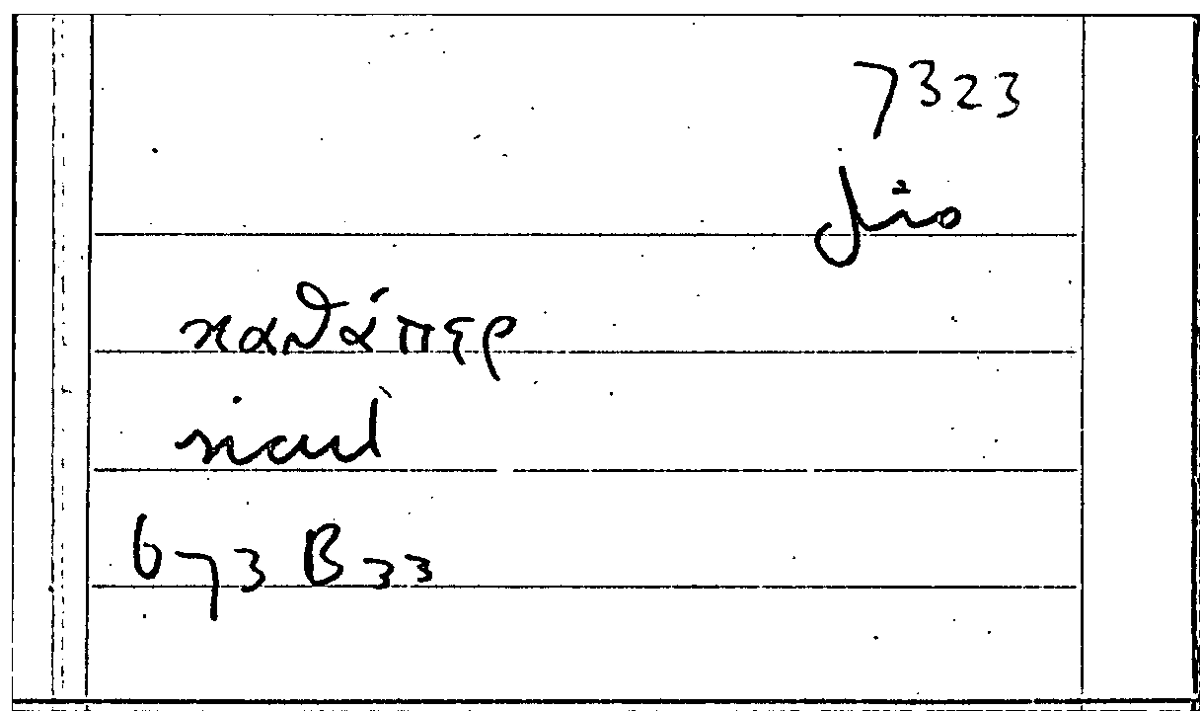 7323
καθάπερ
sicut
673 B 33